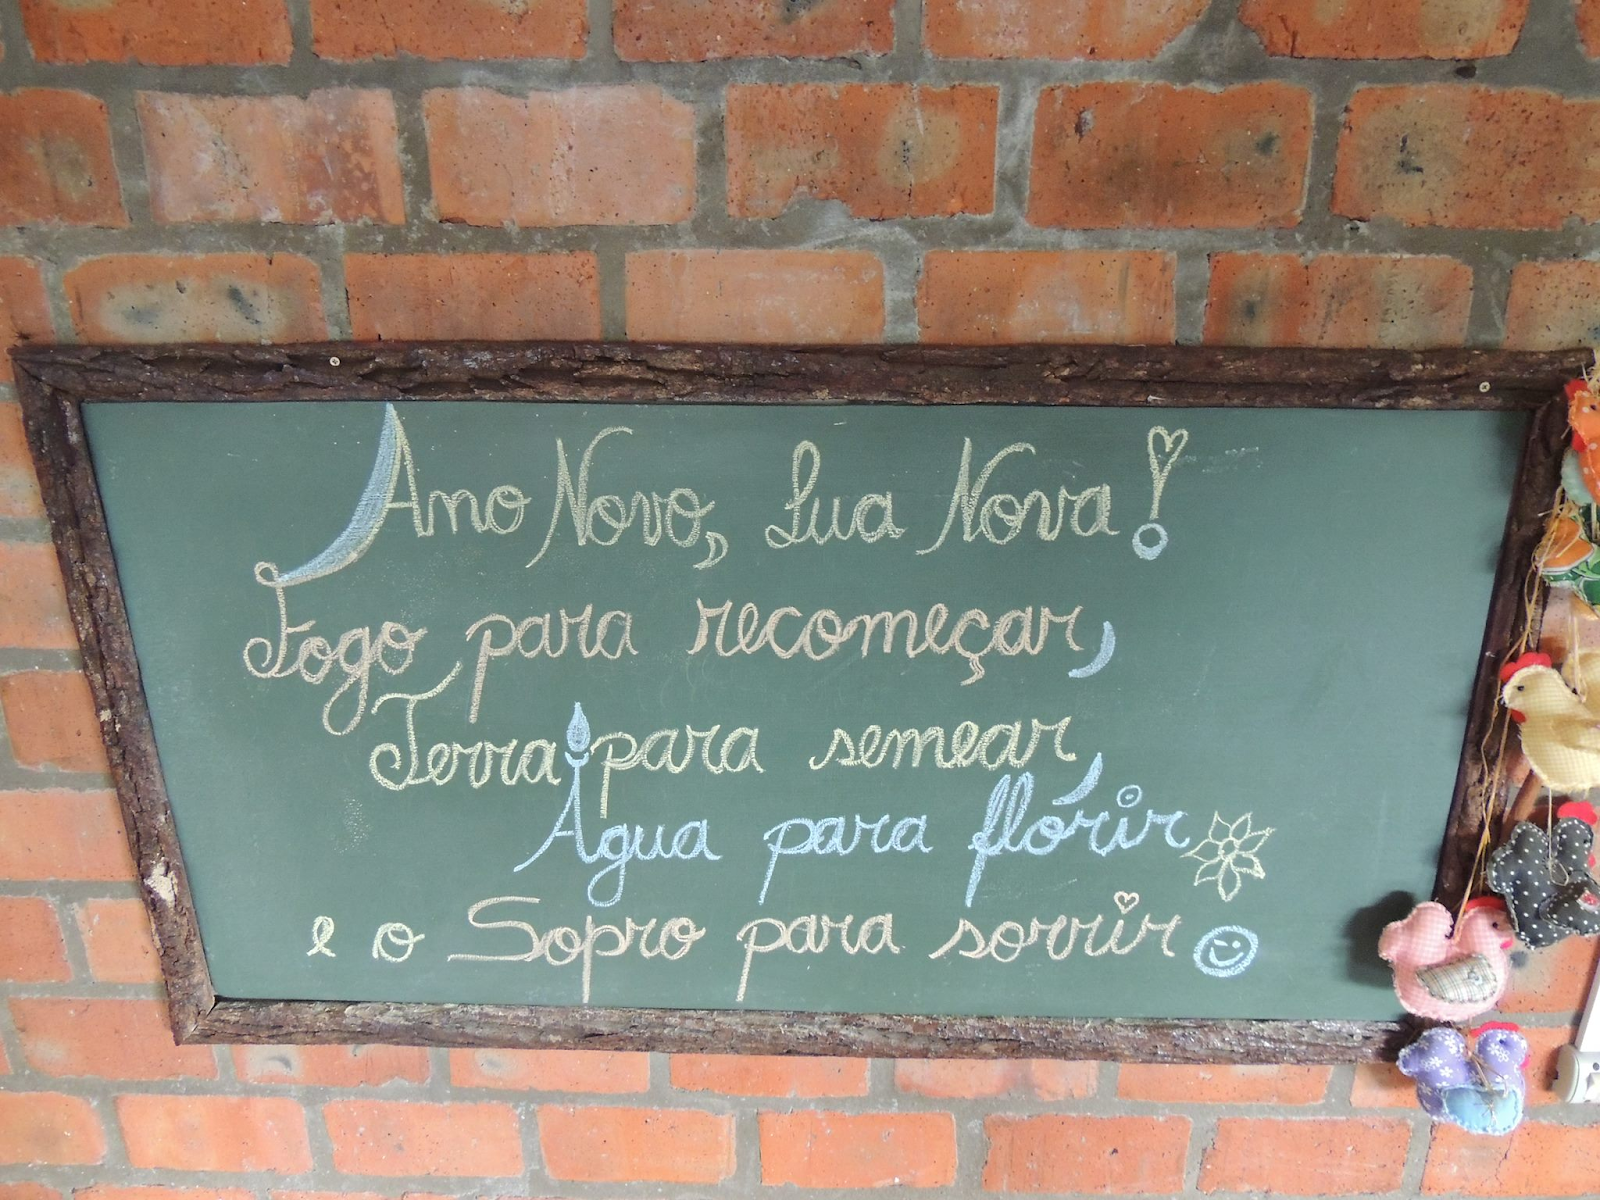 Ano Novo, Lua Nova!
Fogo para recomeçar,
Terra para semear,
Água para florir
e o Sopro para sorrir